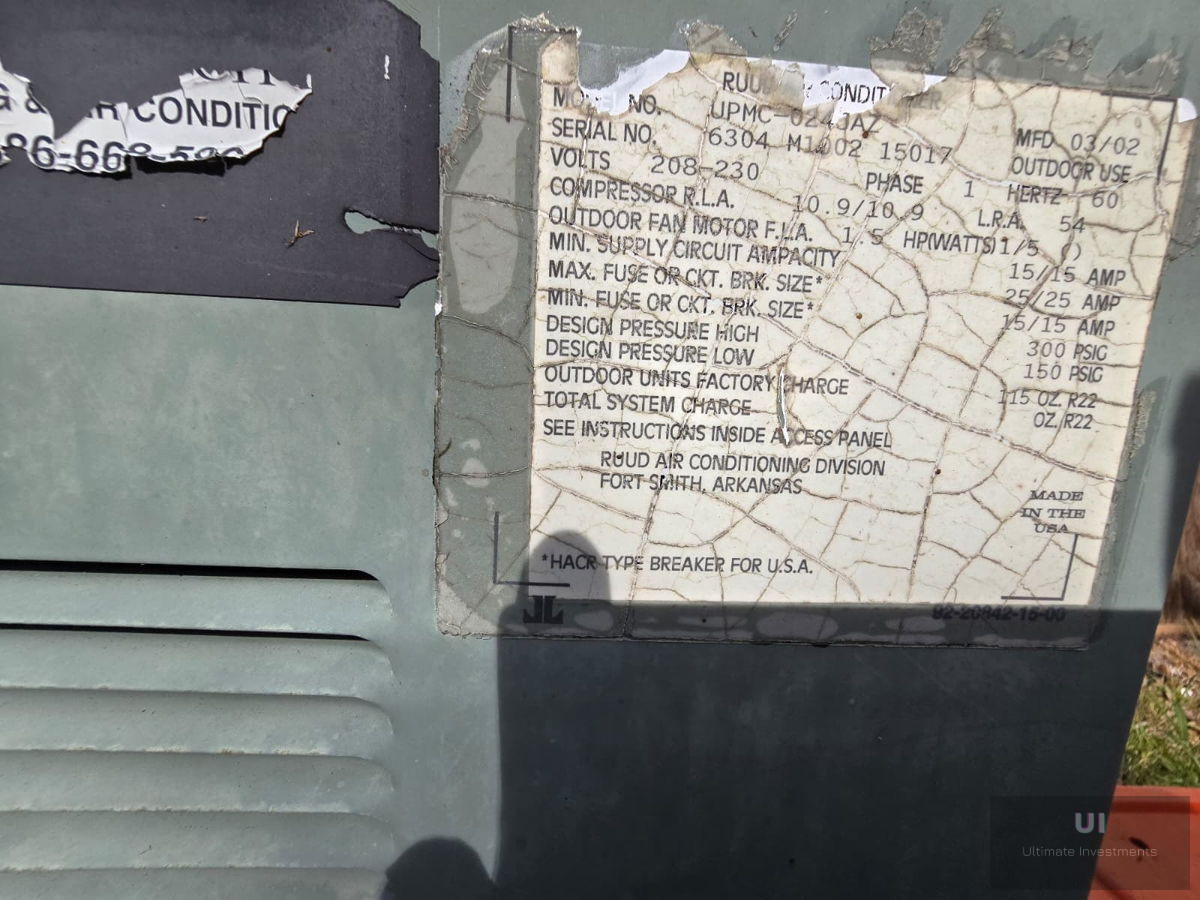 CONDITIO
RUUD CONDITIONER
MODEL NO. UPMC-024JAZ
SERIAL NO. 6304 M1002 15017 MFD 03/02
VOLTS 208-230 PHASE 1 OUTDOOR USE HERTZ 60
COMPRESSOR R.L.A. 10.9/10.9 L.R.A. 54
OUTDOOR FAN MOTOR F.L.A. 1.5 HP(WATTS)1/5 ()
MIN. SUPPLY CIRCUIT AMPACITY 15/15 AMP
MAX. FUSE OR CKT. BRK. SIZE* 25/25 AMP
MIN. FUSE OR CKT. BRK. SIZE* 15/15 AMP
DESIGN PRESSURE HIGH 300 PSIG
DESIGN PRESSURE LOW 150 PSIG
OUTDOOR UNITS FACTORY CHARGE 115 OZ. R22
TOTAL SYSTEM CHARGE OZ. R22
SEE INSTRUCTIONS INSIDE ACCESS PANEL
RUUD AIR CONDITIONING DIVISION
FORT SMITH, ARKANSAS
MADE
IN THE
USA
*HACR TYPE BREAKER FOR U.S.A.
92-20842-15-00
UI
Ultimate Investments